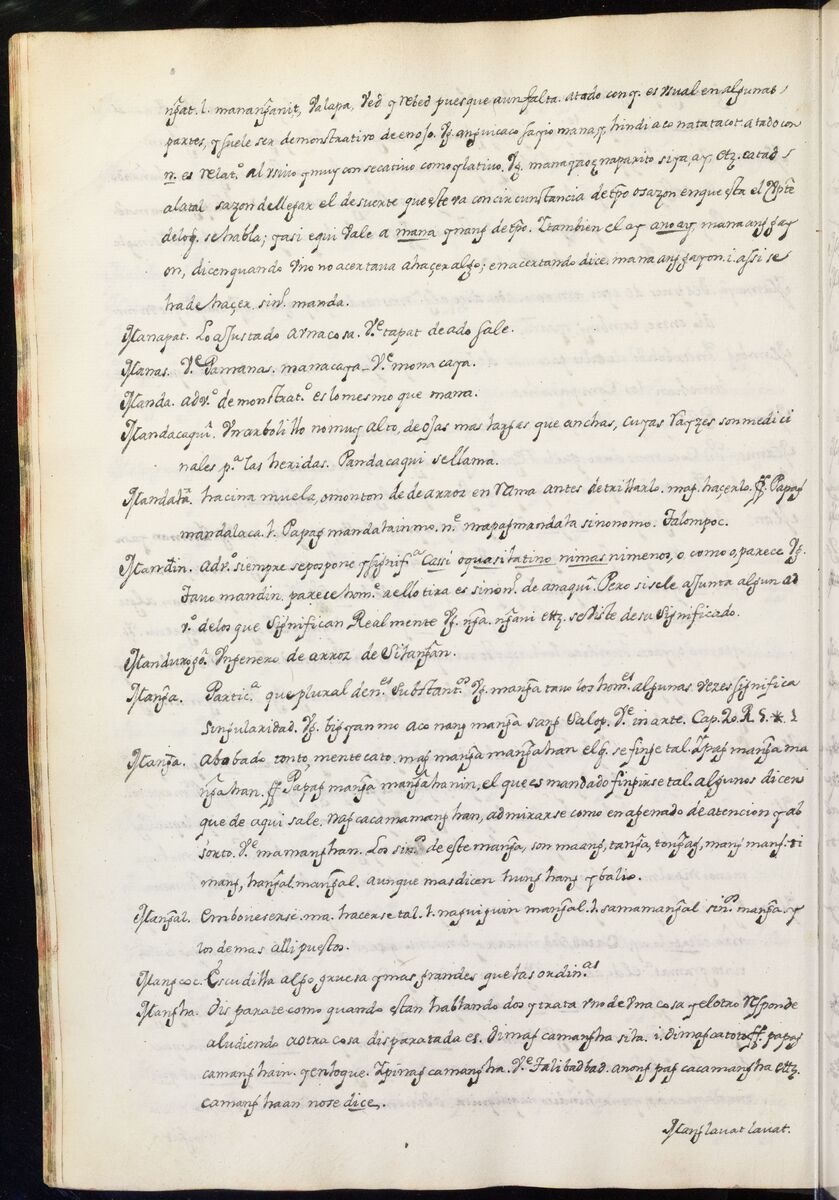 ng̃at. l. manang̃anit, Valapa, Ved y rebed puesque aun falta. atado con g. es usual en algunas
partes, y suele ser demonstrativo de enojo. Vg. anguicaco sayio manay, hindi aco natatacot. atado con
n. es relat.º alusivo y muy consecutivo como y lativo. Vg. manaparito siya, ay, etz. ea tad
alatal sazon dellegar el desuerte que este va con circunstancia de tpõ o sazon en que esta el
deloq. se habla; y asi equi Vale a mana y nang de tpõ. Ztambien el ay anoay, mana ang gay
on, dicen quando Vno no acertava a haçer algo; en acertando dice, mana ang gayon. i. assi se
ha de haçer. sin.l manda.
Manapat. Lo ajustado a Vna cosa. V.e tapat de ado sale.
Manas. V.e Pamanas. manacaya_ V.e monacaya.
Manda. adv.º demonstrat.º es lo mesmo que mana.
Mandacaqui. Vn arbolillo no muy alto, de ojas mas largas que anchas, cuyas rayzes son medici
nales p.a las heridas. Pandacaqui se llama.
Mandala. hacina muela, o monton de de arroz en rama antes de trillarlo. mag. hacerlo. ff. Papag
mandalaca. l. Papag mandalain mo. n.e mapagmandala sinonomo. Talompoc.
Mandin. adv.º siempre se pospone y signifi.a Cassi o quasi latino nimas nimenos, o como o, parece Vg.
Tavo mandin. parece hom.e aello tira es sinon.l de anaqui. Pero si se le ajunta algun ad
v.º de los que significan Realmente Vg. ng̃a. ng̃ani etz. se viste de su significado.
Mandurogo. Vn genero de arroz de Sitang̃an.
Mang̃a. Partic.a que plural de n.es substant.os Vg. mang̃a tavo los hom.es algunas vezes significa
singularidad. Vg. bigyan mo aco nang mang̃a sang Salop. V.e in arte. Cap. 20. R. §. * 1
Mang̃a. abobado tonto, mentecato. mag mang̃a mang̃ahan el q. se finje tal. Zpag mang̃a ma
ng̃ahan. ff Papag mang̃a mang̃ahanin, el que es mandado fingirse tal. algunos dicen
que de aqui sale, nag cacamamanghan, admirarse como enagenado de atencion y ab
sorto. V.e mamanghan. Los sin.os de este mang̃a, son maang, tang̃a, tong̃ag, mang mang. ti
mang, hang̃al. mang̃al. aunque mas dicen hung hang y balio.
Mang̃al. Embovesense. ma. hacerse tal. l. naguiguin mang̃al. l. samamang̃al sin.os mang̃a. y
los demas alli puestos.
Mangcoc. Escudilla algo gruesa y mas grandes que las ordin.as
Mangha. Disparate como quando estan hablando dos y trata vno de Vna cosa y el otro responde
aludiendo a otra cosa disparatada es. dimag camangha sila. i. dimagcatoto ff. papag
camanghain. y en loque. Zpinag camangha. V.e Talibadbad. anong pag cacamangha ettz.
camanghaan no se dice.
Manglavat lavat.